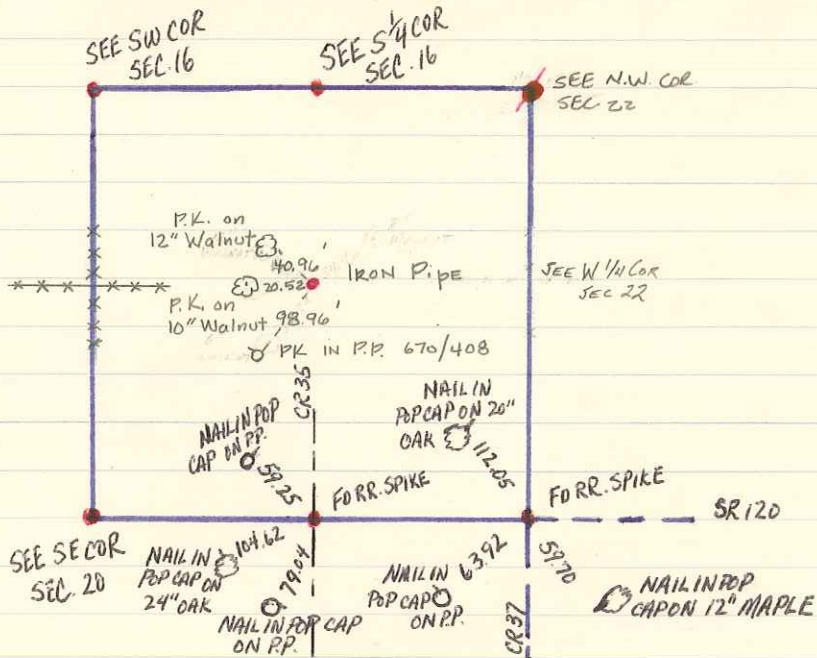 SEE SW COR
SEC. 16
SEE S 1/4 COR
SEC. 16
SEE N.W. COR
SEC 22
P.K. on
12" Walnut
140.96'
IRON PIPE
20.52'
P.K. on
10" Walnut
98.96'
PK IN P.P. 670/408
SEE W 1/4 COR
SEC 22
CR35
NAIL IN
POP CAP ON 20"
OAK
112.05
NAIL IN POP
CAP ON P.P.
59.25
FD RR. SPIKE
FD RR. SPIKE
SR 120
SEE SE COR
SEC. 20
NAIL IN
POP CAP ON
24" OAK
104.62
79.04
NAIL IN POP CAP
ON P.P.
NAIL IN
POP CAP
ON P.P.
63.92
59.70
CR37
NAIL IN POP
CAP ON 12" MAPLE